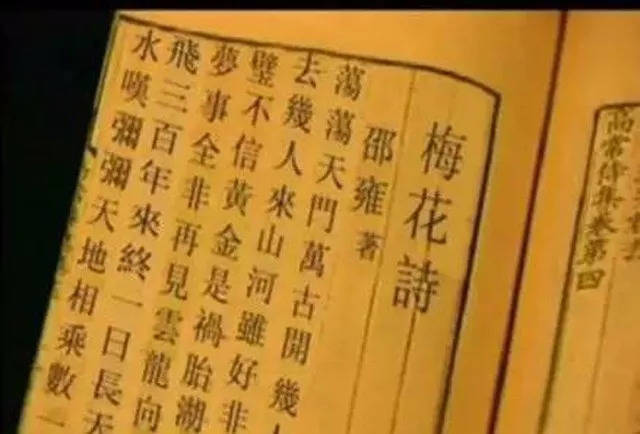 高常侍集卷第四
梅花詩
邵雍著
蕩蕩天門萬古開幾人
去幾人來山河雖好非
璧不信黃金是禍胎湖
夢事全非再見雲龍向
飛三百年來終一日長天
水嘆彌彌天地相乘數一